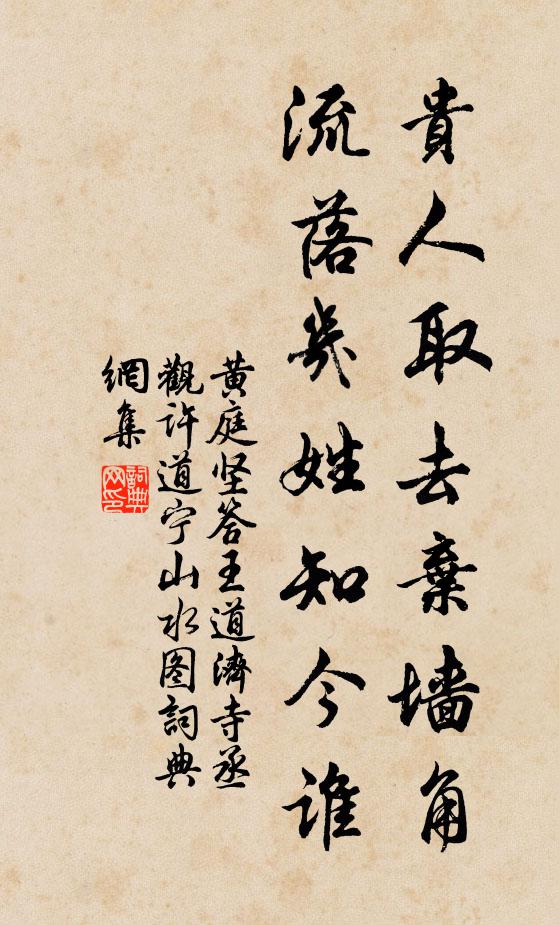 貴人取去棄墻角
流落幾姓知今誰
黄庭坚答王道濟寺丞
觀許道宁山水图詞典
網集
詞典
网印